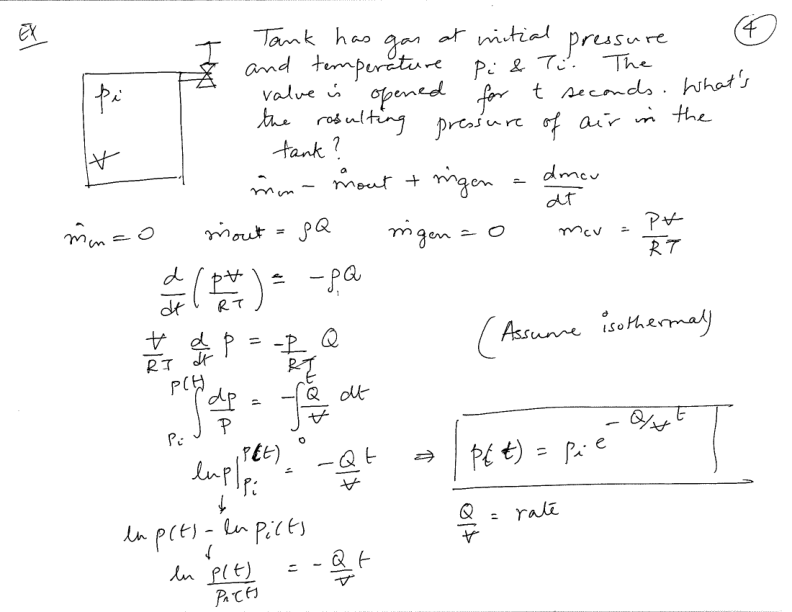 Ex
④
Tank has gas at initial pressure
and temperature pi & Ti. The
valve is opened for t seconds. What's
the resulting pressure of air in the
tank?
pi
V̶
ṁin - ṁout + ṁgen = dmcv/dt
ṁin = 0 ṁout = ρQ ṁgen = 0 mcv = PV̶/RT
d/dt (pV̶/RT) = -ρQ
V̶/RT d/dt p = -P/RT Q (Assume isothermal)
∫_{Pi}^{P(t)} dp/P = -∫_0^t Q/V̶ dt
ln p|_{Pi}^{P(t)} = -Q/V̶ t ⇒ P(t) = Pi e^{-Q/V̶ t}
↓
ln p(t) - ln pi(t) Q/V̶ = rate
↓
ln p(t)/Pi(t) = -Q/V̶ t